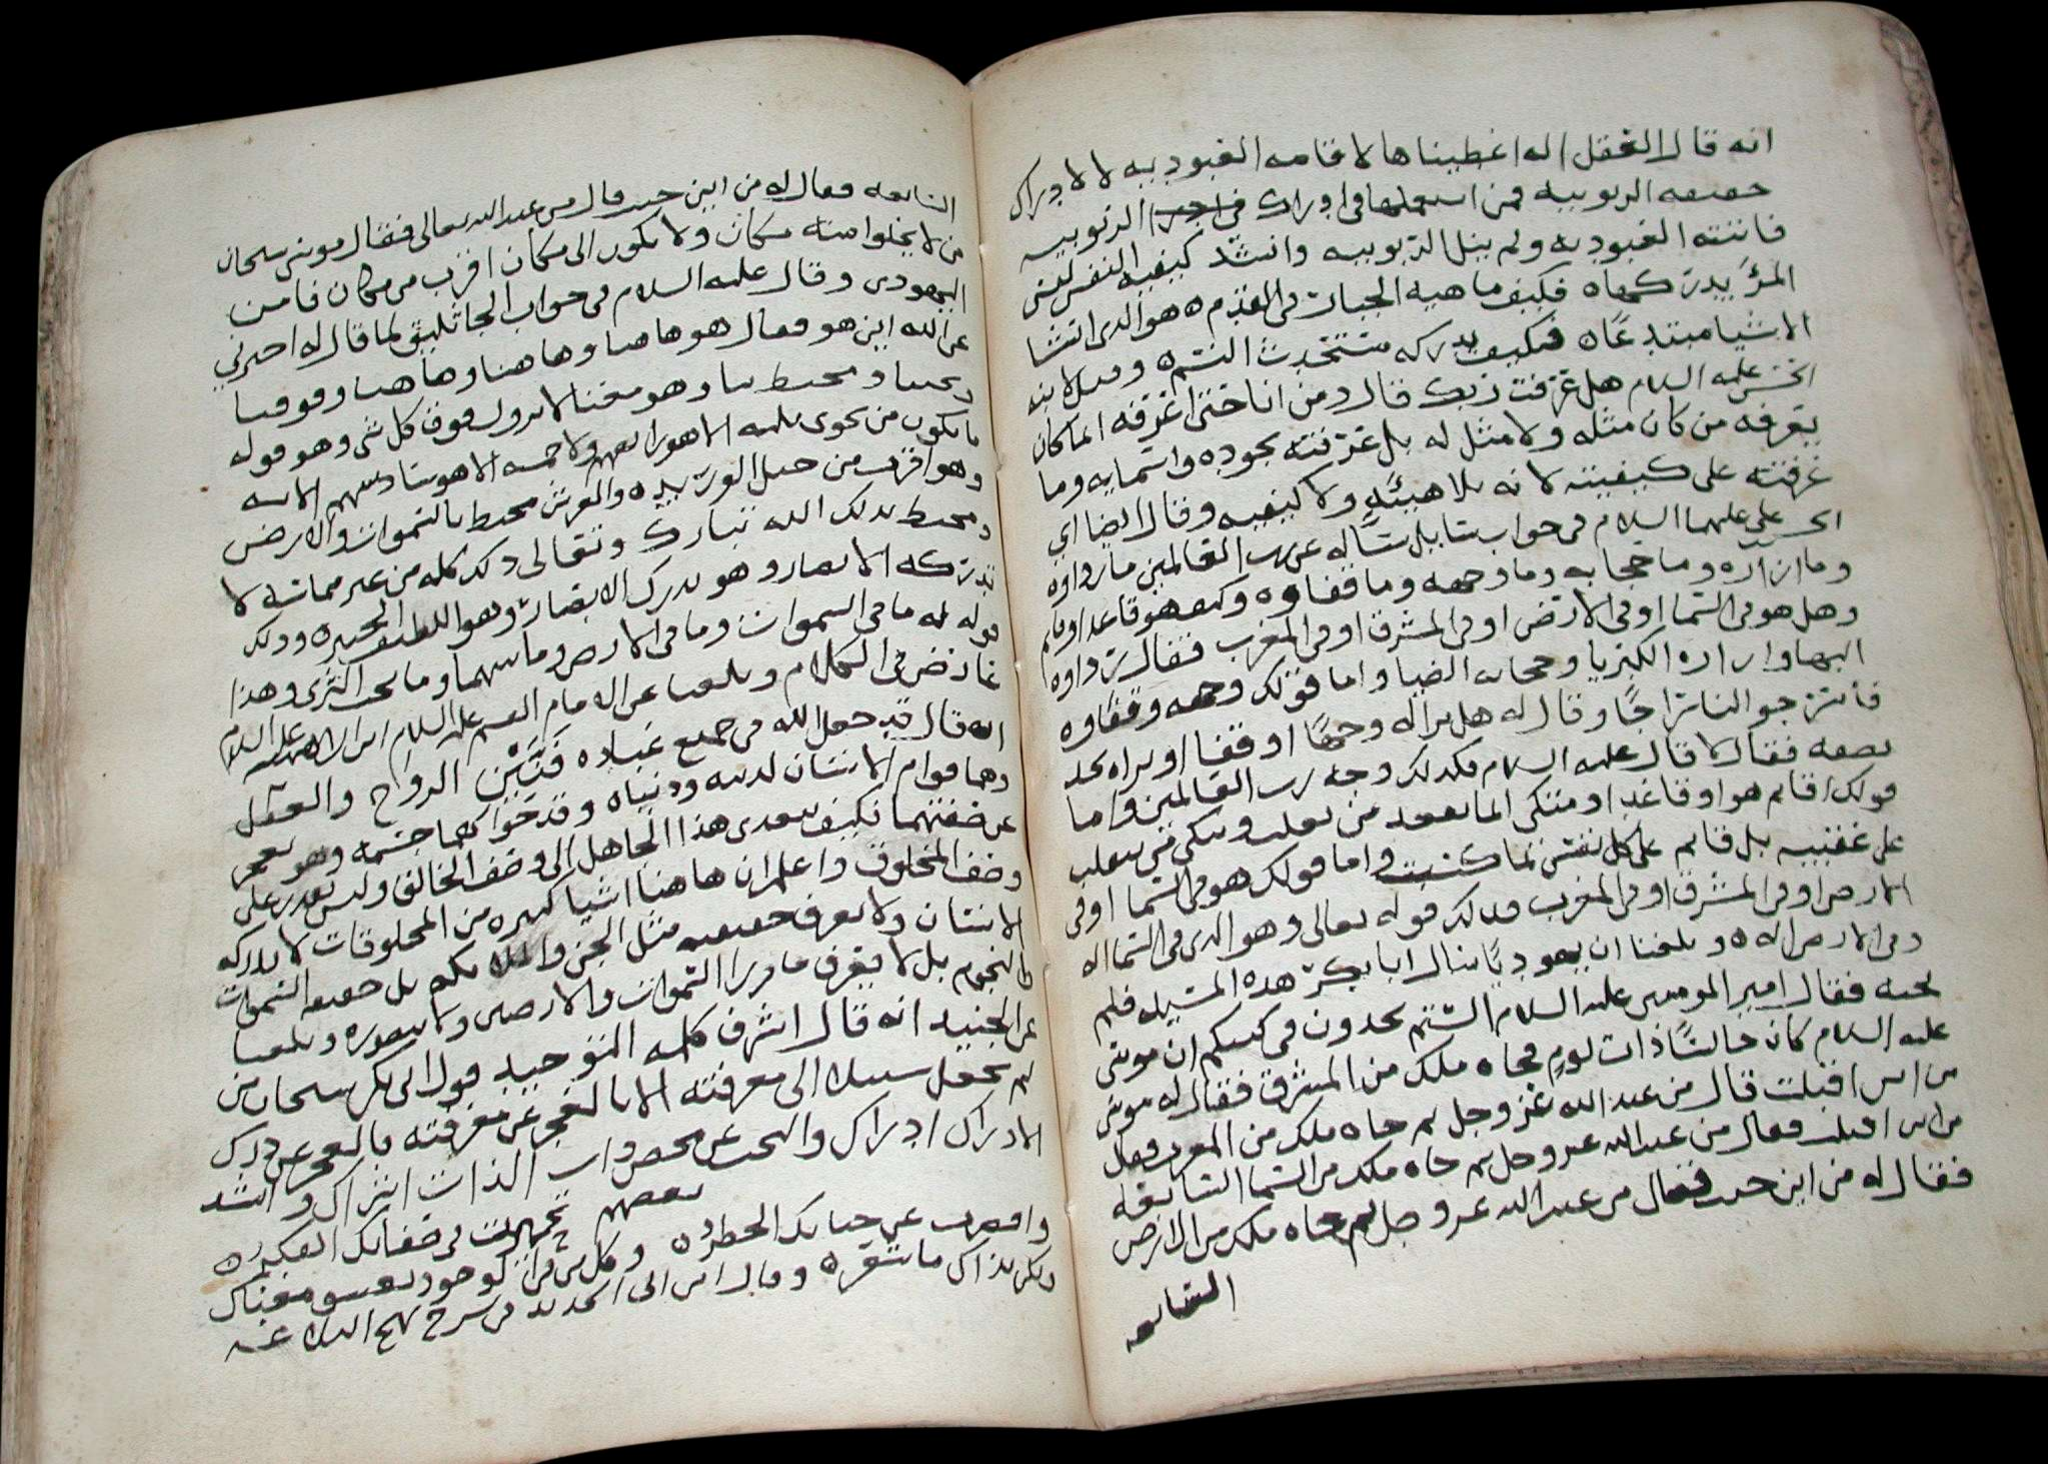 انه قال العقل اله اعطيناها لاقامه العبوديه لا لادراك
حقيقه الربوبيه فمن استعملها في ادراك الربوبيه
فاتته العبوديه ولم ينل الربوبيه وانشد كيفيه النفس ليس
المرء يدركها ه فكيف ماهيه الجبار في القدم ه هو الذي انشا
الاشيا مبتدعا ه فكيف يدركه مستحدث النسم ه وقيل لابنه
الحسن عليه السلام هل عرفت ربك قال ومن انا حتى اعرفه انما كان
يعرفه من كان مثله ولا مثل له بل عرفته بجوده واسمايه وما
عرفته على كيفيته لانه بلا هيئه ولا كيفيه وقال ايضا اي
الحسن علي عليهما السلام في جواب سايل ساله عن رب العالمين ما رداوه
وما ازاره وما حجابه وما وجهه وما قفاوه وكيف هو قاعد او قايم
وهل هو في السما او في الارض او في المشرق او في المغرب فقال رداوه
البها وازاره الكبريا وحجابه الضيا واما قولك وجهه وقفاوه
فاسرجوا لنا سراجا وقال له هل يرا له وجها او قفا او يراه بحد
بصفه فقال لا قال عليه السلام فكذلك وجه رب العالمين واما
قولك قايم هو او قاعد او متكي انما يقعد من تعب ويتكي من تعب
على عقبيه بل قايم على كل نفس بما كسبت واما قولك هو في السما او في
الارض او في المشرق او في المغرب فذلك قوله تعالى وهو الذي في السما اله
وفي الارض اله ه وبلغنا ان يهوديا سال ابا بكر هذه المسيله فلم
يجبه فقال امير المومنين عليه السلام الستم تجدون في كتبكم ان موسى
عليه السلام كان جالسا ذات يوم فجاه ملك من المشرق فقال له موسى
من اين اقبلت قال من عند الله عز وجل ثم جاه ملك من المغرب فقال
من اين اقبلت فقال من عند الله عز وجل ثم جاه ملك من السما السابعه
فقال له من اين جيت فقال من عند الله عز وجل ثم جاه ملك من الارض
السابعه
السابعه فقال له من اين جيت قال من عند الله تعالى فقال موسى سبحان
من لا يخلوا منه مكان ولا يكون الى مكان اقرب من مكان فامن
اليهودي وقال عليه السلام في جواب الجاثليق لما قال له اخبرني
عن الله اين هو فقال هو هاهنا وهاهنا وهاهنا وفوقنا
وتحتنا ومحيط بنا وهو معنا لا يزول فوق كل شي وهو قوله
ما يكون من نجوى ثلثه الا هو رابعهم ولا خمسه الا هو سادسهم الايه
وهو اقرب من حبل الوريد ه والعرش محيط بالسموات والارض
ومحيط بذلك الله تبارك وتعالى وذلك كله من غير مماسه لا
تدركه الابصار وهو يدرك الابصار وهو اللطيف الخبير ه وذلك
قوله له ما في السموات وما في الارض وما بينهما وما تحت الثرى وهذا
عارض في الكلام وبلغنا عن الامام القسم عليه السلام ابن ابراهيم عليه السلام
انه قال قد جعل الله في جميع عباده فتين الروح والعقل
وهما قوام الانسان لدينه ودنياه وقد حواهما جسمه وهو يعجز
عن صفتهما فكيف يتعدى هذا الجاهل الى وصف الخالق وليس يقدر على
وصف المخلوق واعلم ان هاهنا اشيا كثيره من المخلوقات لا يدركه
الانسان ولا يعرف حقيقته مثل الجن والملايكه بل حقيقه السموات
والنجوم بل لا يعرف ما ورا السموات والارضين ولا يتصوره وبلغنا
عن الجنيد انه قال اشرف كلمه التوحيد قول ابي بكر سبحان من
لم يجعل سبيلا الى معرفته الا بالعجز عن معرفته فالعجز عن درك
الادراك ادراك والبحث عن محض ذات الذات اشراك وانشد
بعضهم
تحيرت في صفاتك الفكر ه
واقصرت عن جنابك الخطره وكل شي وان كوحود بعين معناك
ولكن نداك ما نستقره وقال ابن ابي الحديد في شرح نهج البلاغه